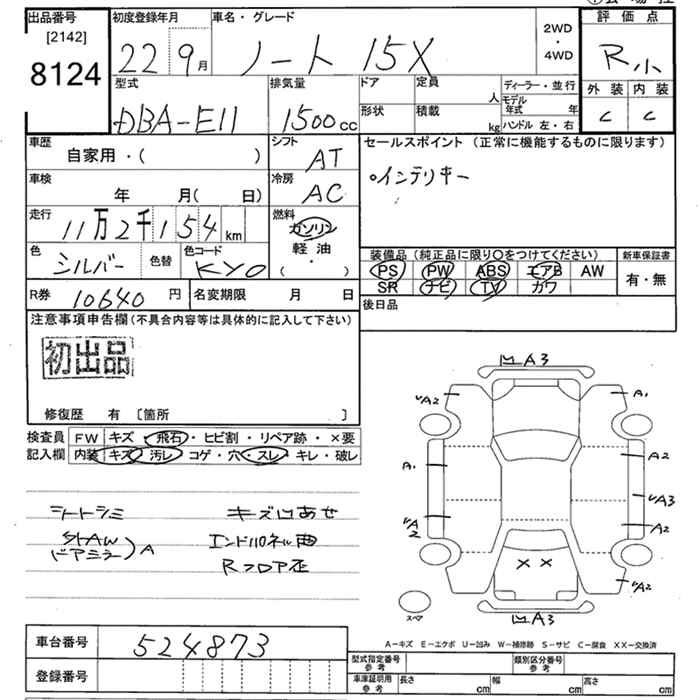 出品番号
[2142]
8124
初度登録年月
22 9月
車名・グレード
ノート 15X
2WD
・
4WD
評価点
R小
外装 内装
C C
型式
DBA-E11
排気量
1500cc
ドア
定員
人
形状
積載
kg
ディーラー・並行
モデル年式 年
ハンドル 左・右
車歴
自家用・( )
シフト
AT
車検
年 月( 日)
冷房
AC
走行
11万2千154km
燃料
ガソリン
軽・油
( ・ )
色
シルバー
色替
色コード
KYO
セールスポイント (正常に機能するものに限ります)
○インテリキー
装備品 (純正品に限り○をつけてください)
PS PW ABS エアB AW
SR ナビ TV カワ
新車保証書
有・無
R券
10640円
名変期限 月 日
後日品
注意事項申告欄(不具合内容等は具体的に記入して下さい)
初出品
修復歴 有 [箇所 ]
検査員
記入欄
FW キズ・飛石・ヒビ割・リペア跡・×要
内装 キズ・汚レ・コゲ・穴・スレ・キレ・破レ
シートシミ
ドアミラー A
キズ凹あせ
エンドパネル曲
Rフロア歪
凹A3
A2
A1
A1
A2
A3
A2
A2
A2
××
凹A3
スペア
A-キズ E-エクボ U-凹み W-補修跡 S-サビ C-腐食 XX-交換済
車台番号
524873
登録番号
型式指定番号
参考
類別区分番号
参考
車庫証明用
参考
長さ cm
幅 cm
高さ cm